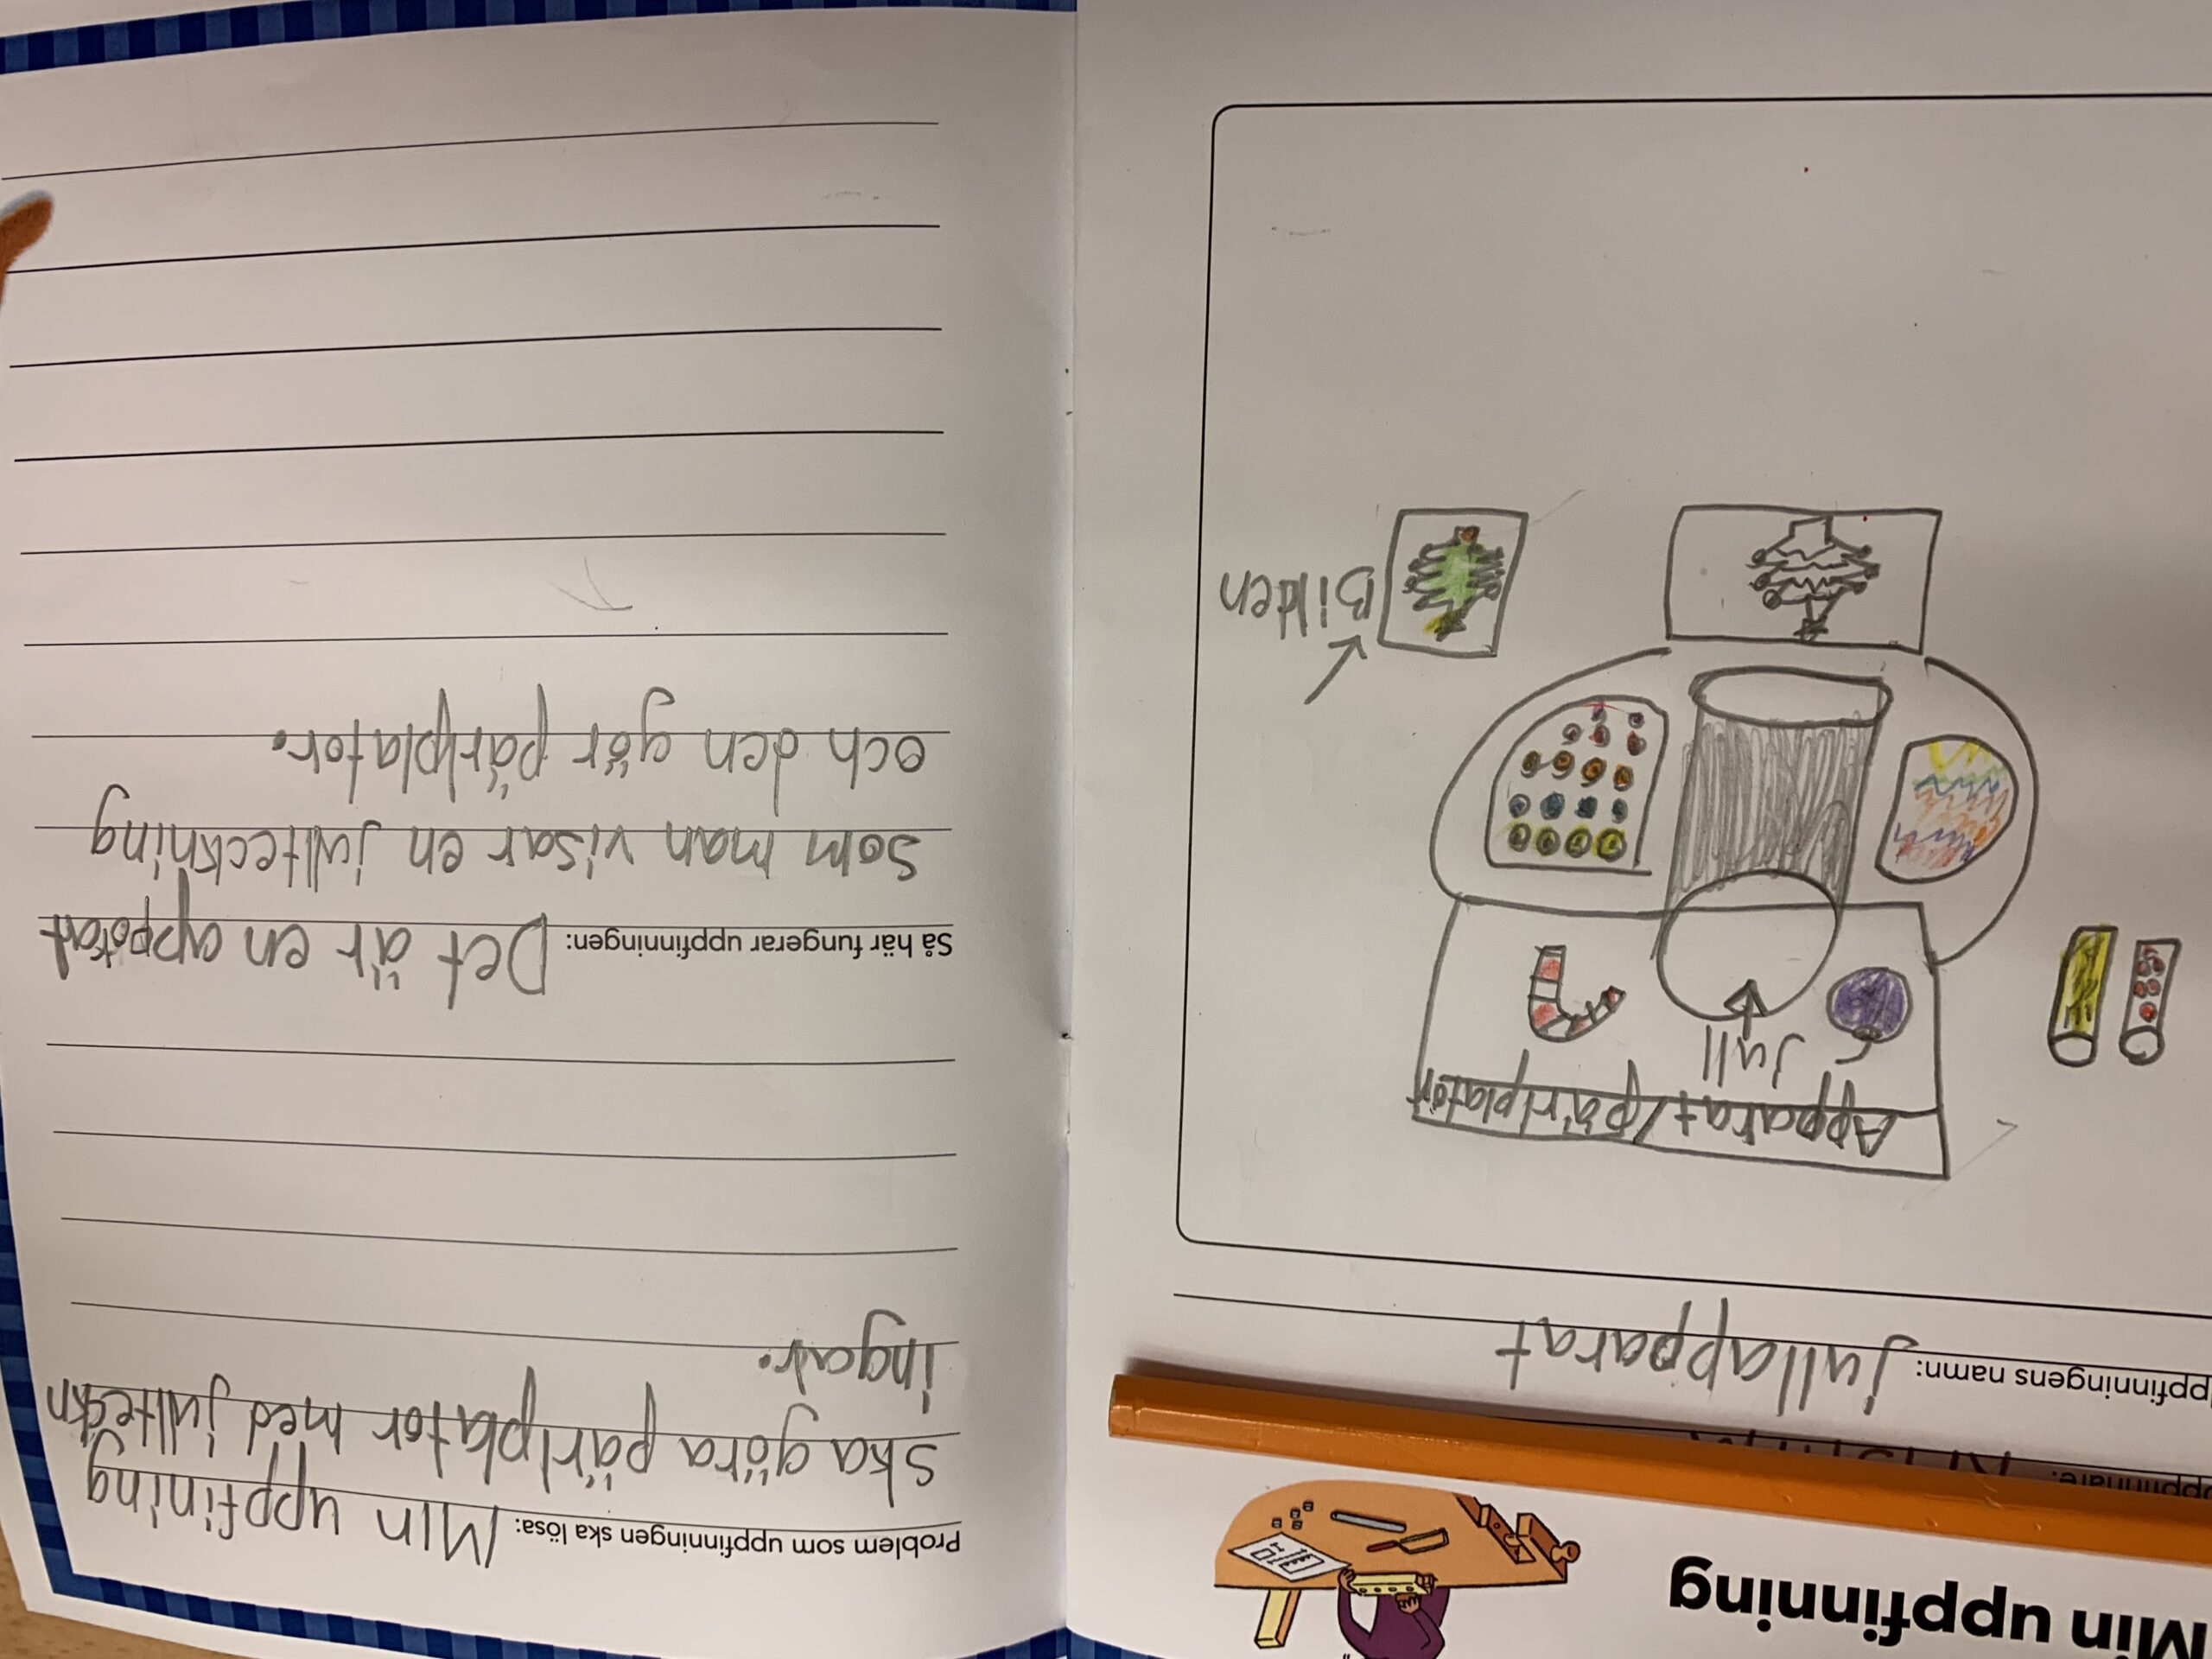 Min uppfinning
Uppfinningens namn: jullapparat
Apparat/pärlplator
Jull
Bilden
Problem som uppfinningen ska lösa: Min uppfining
ska göra pärlplator med jullteckn
ingar.
Så här fungerar uppfinningen: Det är en apparat
som man visar en jullteckning
och den gör pärlplator.